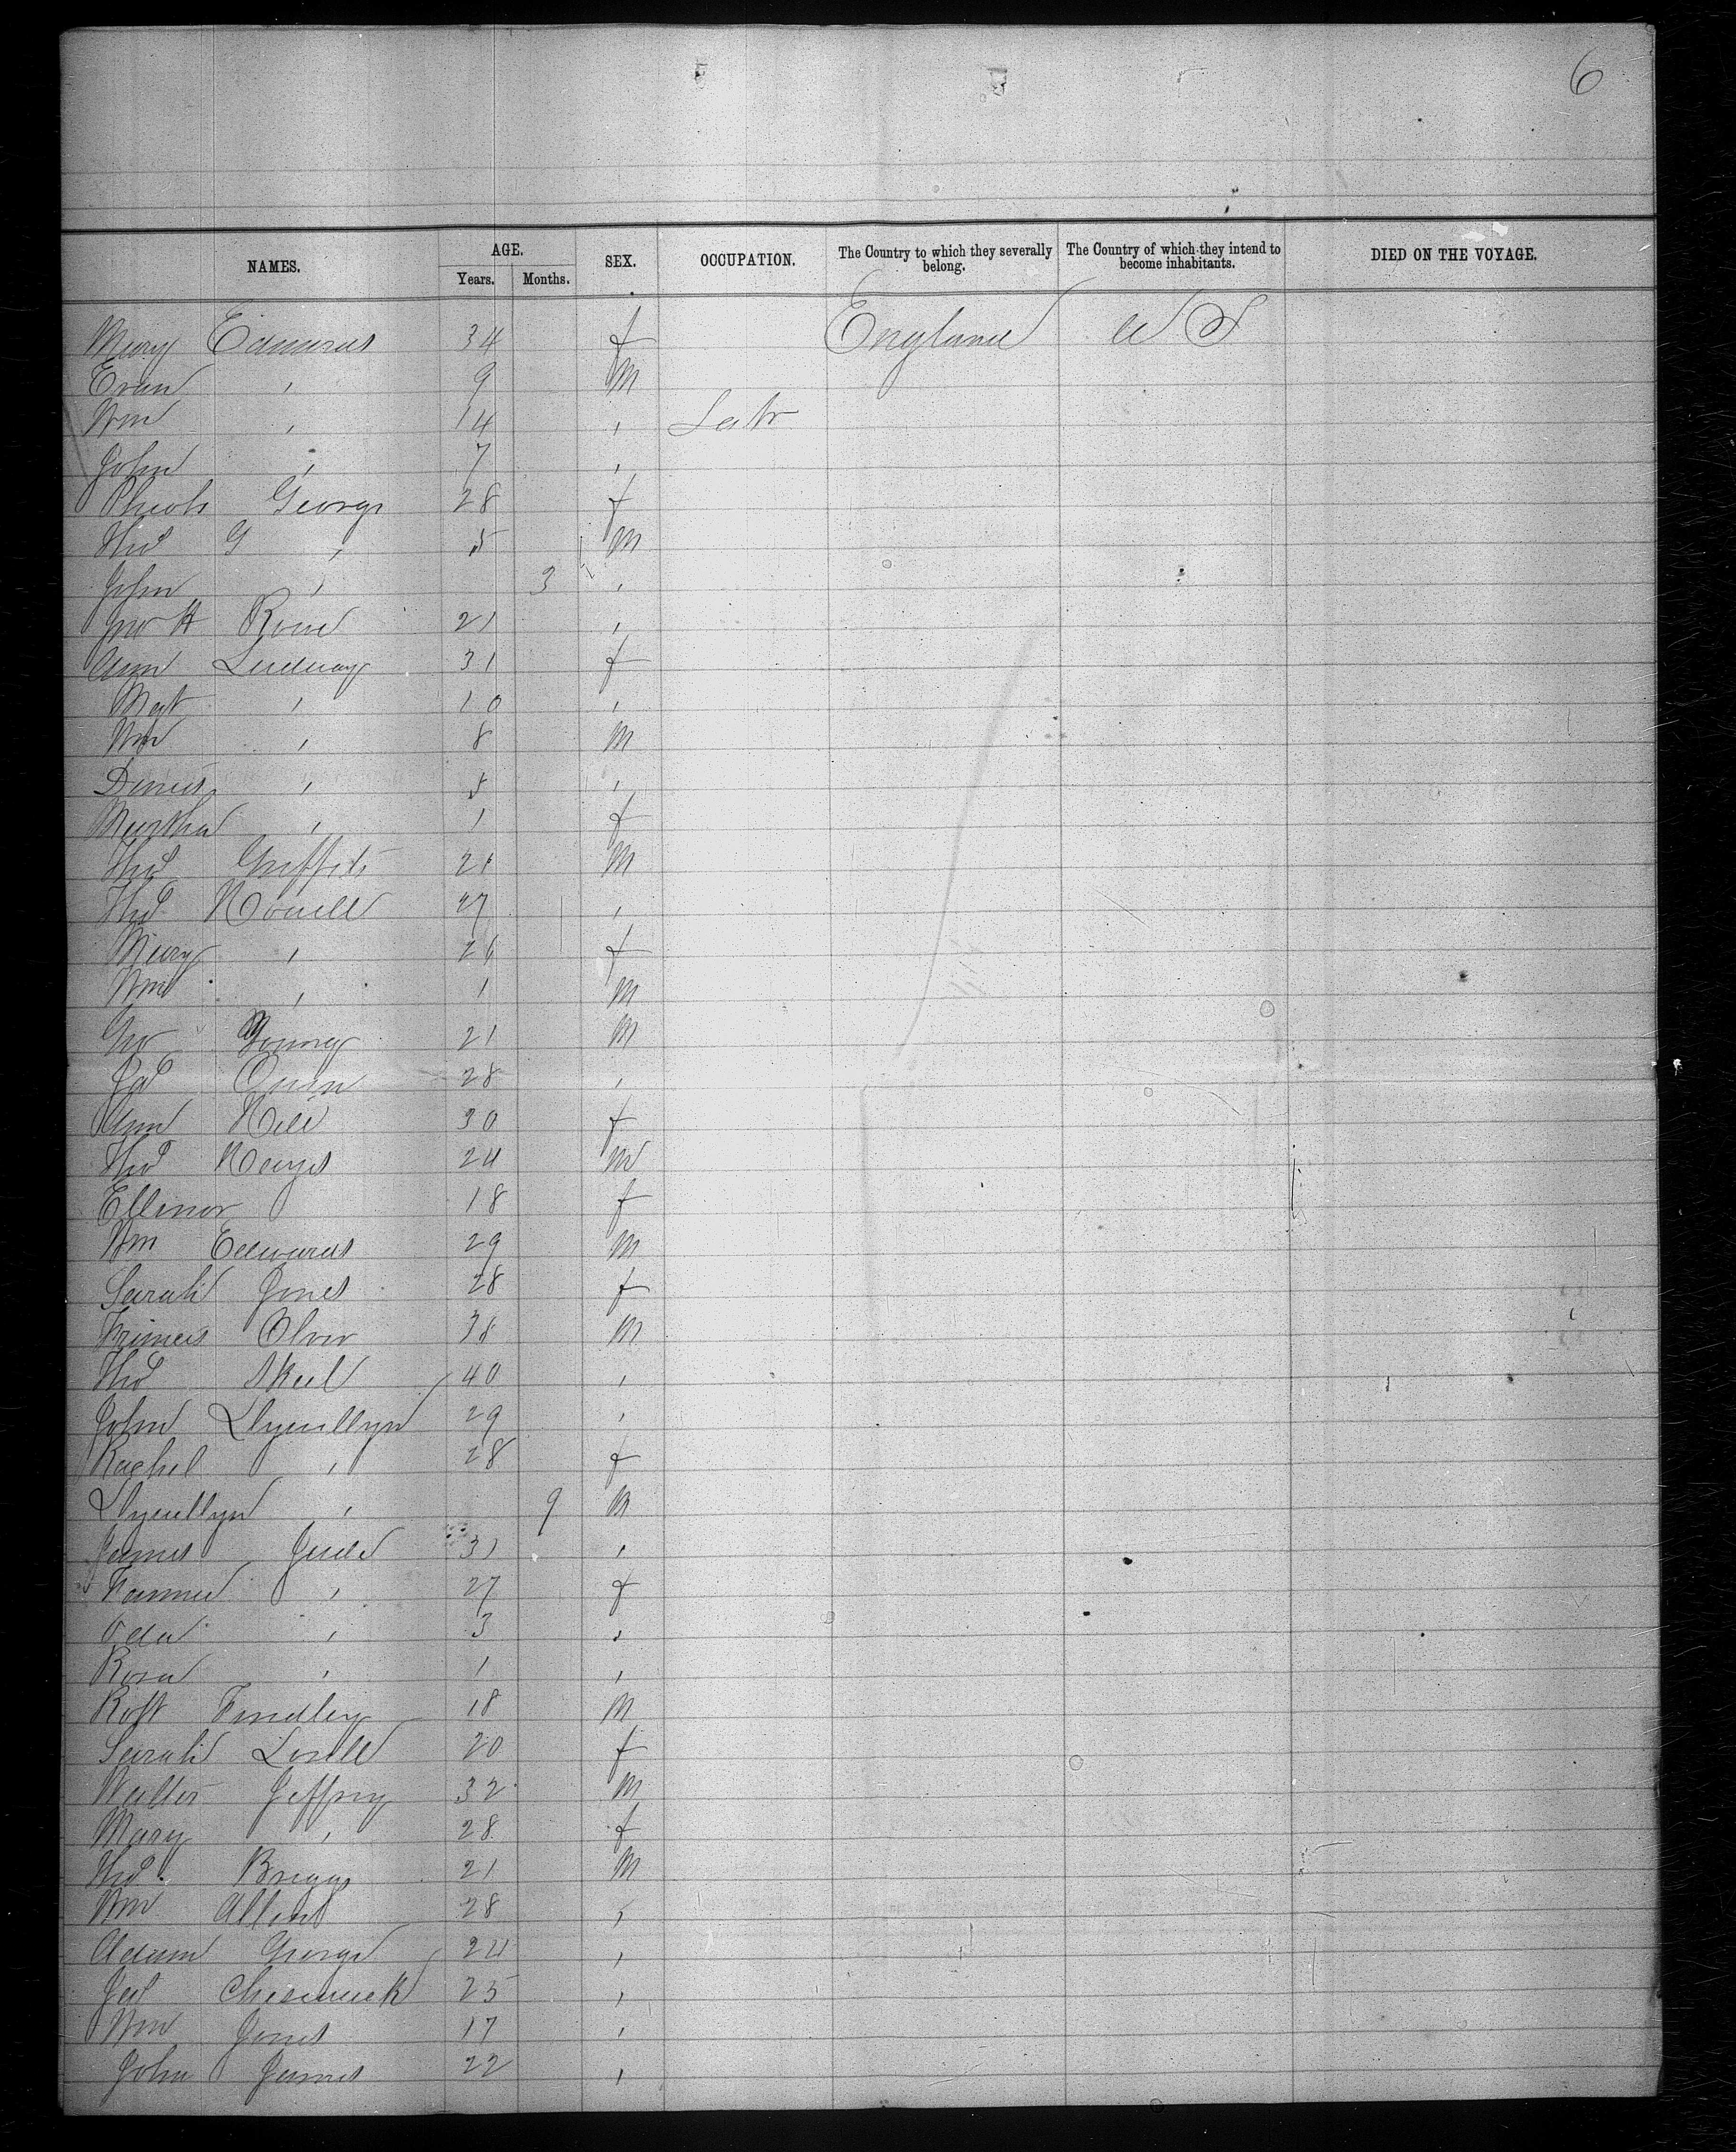 6
NAMES. AGE. Years. Months. SEX. OCCUPATION. The Country to which they severally belong. The Country of which they intend to become inhabitants. DIED ON THE VOYAGE.
Mary Edwards 34 f England U S
Evan , 9 M
Wm , 14 , Labr
John , 7 ,
Pheob George 28 f
Thos G , 5 M
John , 3 ,
Jno H Rowe 21 ,
Ann 31 f
Mgt , 10 ,
Wm , 8 M
Dennis , 5 ,
Martha , 1 f
Thos Griffith 21 M
Thos Howell 27 ,
Mary , 26 f
Wm , 1 M
Geo Young 21 M
Jas Owen 28 ,
Ann Hill 30 f
Thos Hayes 24 M
Ellinor 18 f
Wm Edwards 29 M
Sarah Jones 28 f
Francis Olver 38 M
Thos Skeel 40 ,
John Llyewllyn 29 ,
Rachel , 28 f
Llyewllyn , 9 M
James Jude 31 ,
Fannie , 27 f
Ada , 3 ,
Rosa , 1 ,
Robt Findley 18 M
Sarah 20 f
Walter Jeffrey 32 M
Mary , 28 f
Thos Briggs 21 M
Wm Allen 28 ,
Adam George 24 ,
Jas 25 ,
Wm Jones 17 ,
John James 22 ,